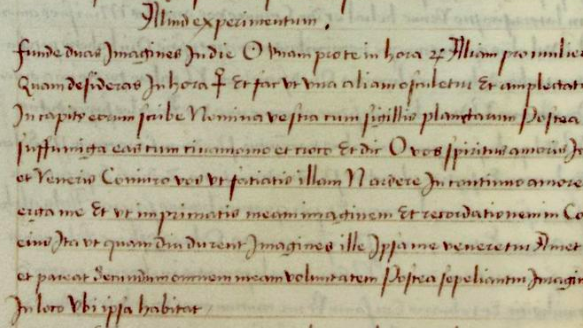 Alliud experimentum.
funde duas Imagines In die O Unam pro te in hora ♃ Alliam pro muliere
Quam desideras In hora ♀ Et fac ut una aliam osculetur Et amplectat
In capite eorum scribe Nomina vestra cum sigillis planetarum Postea
suffumiga eas cum cinamomo et croco Et dic O vos spiritus amoris Io
et Veneris Coniuro vos Ut fatiatis illam N ardere In continuo amore
erga me Et ut imprimatis meam imaginem Et recordationem in Co
eius Ita ut quam diu durent Imagines ille Ipsa me veneretur Amet
et pareat secundum omnem meam voluntatem Postea sepeliantur Imagin
In loco Ubi ipsa habitat